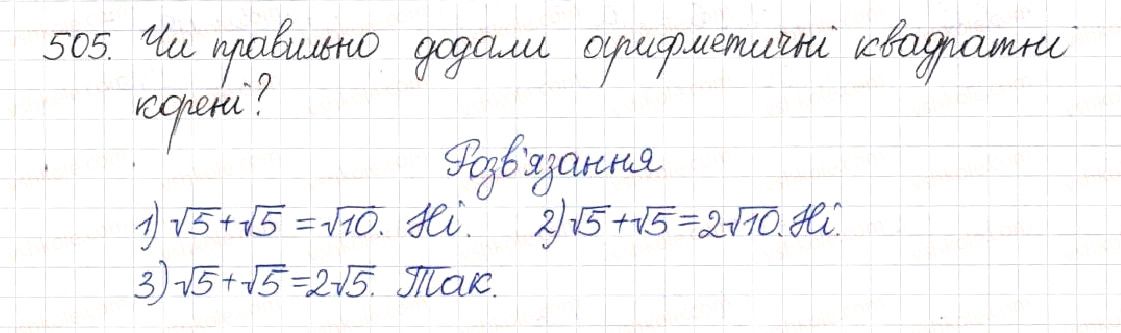 505. Чи правильно додали арифметичні квадратні
корені?
Розв'язання
1) √5+√5 = √10. Ні. 2) √5+√5=2√10. Ні.
3) √5+√5=2√5. Так.